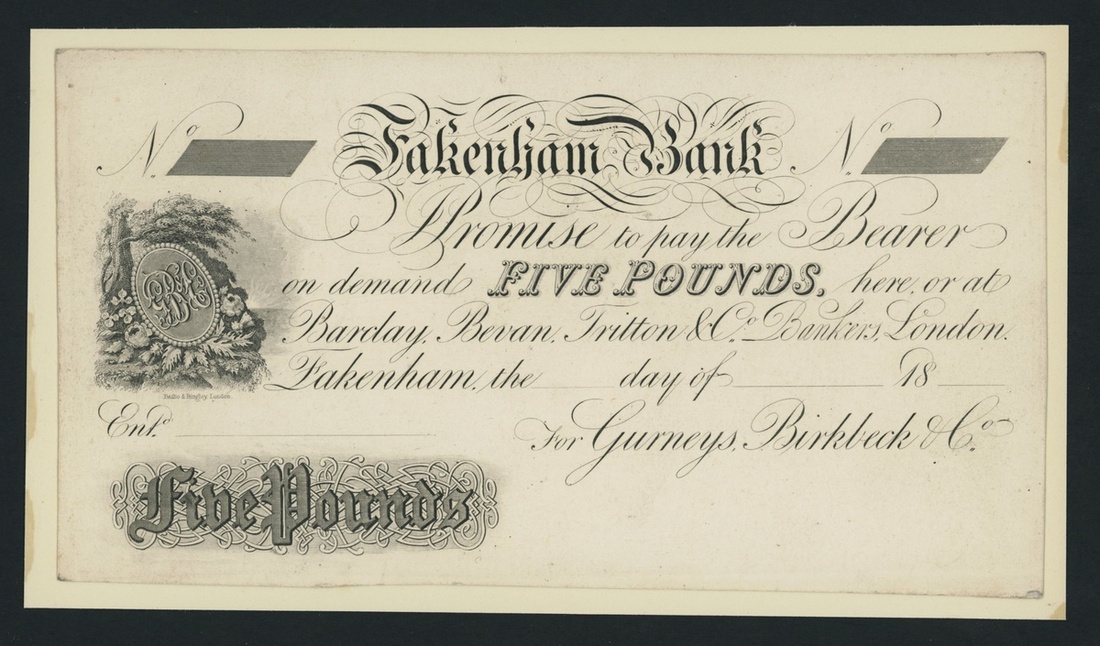 No. Fakenham Bank. No.
I Promise to pay the Bearer
on demand FIVE POUNDS, here, or at
Barclay, Bevan, Tritton & Co. Bankers, London.
Fakenham, the day of 18
Entd.
For Gurneys, Birkbeck & Co.
Five Pounds